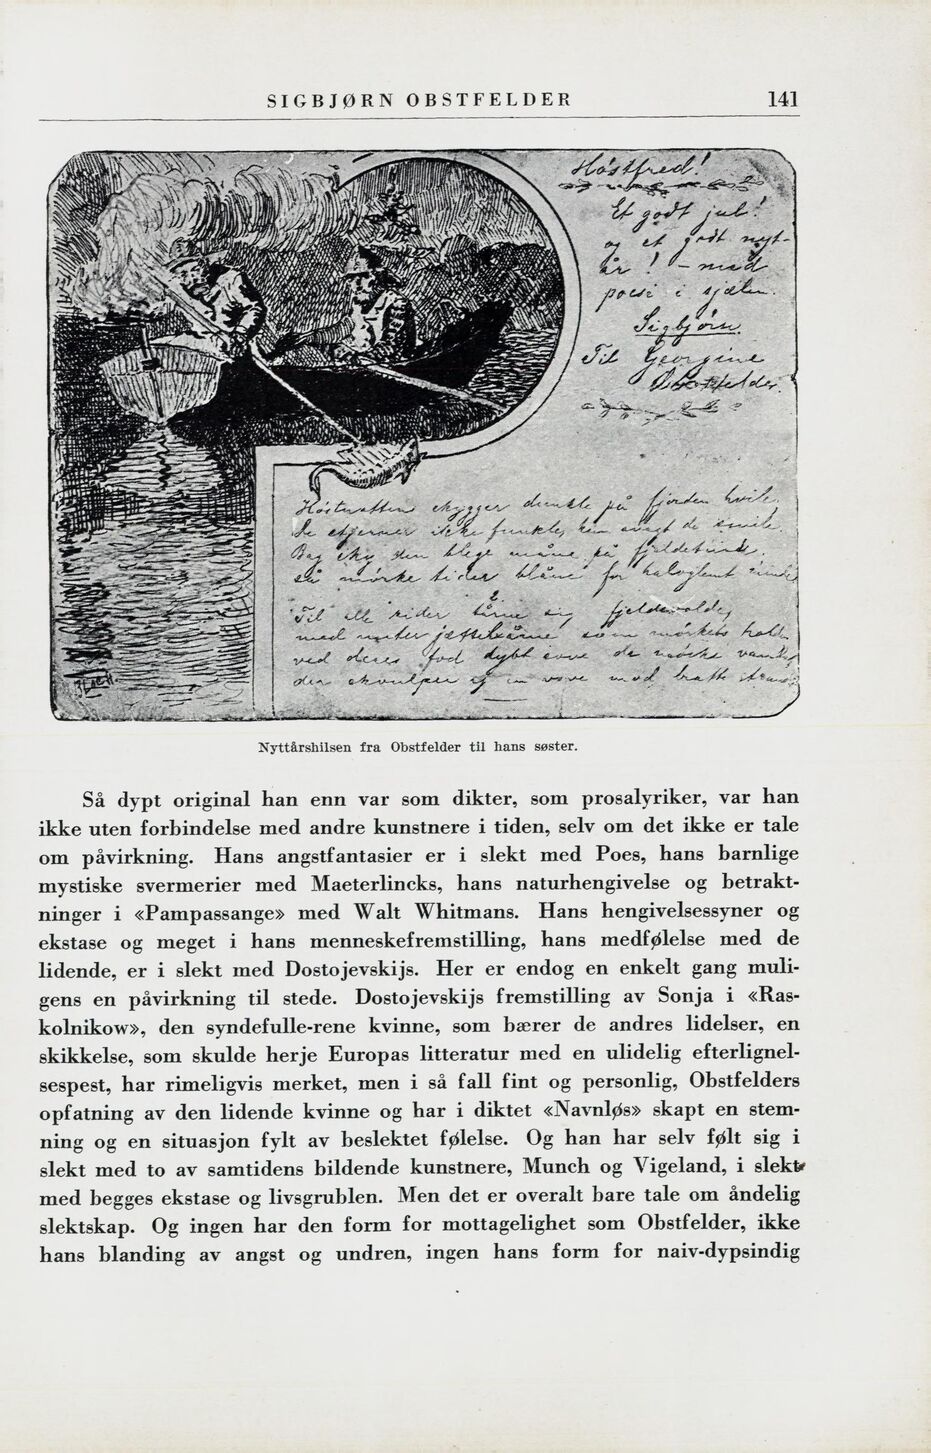 SIGBJØRN OBSTFELDER 141
Høstfred!
Et godt jul!
og et godt nyt-
år! – med
poesi i sjælen.
Sigbjørn.
Til Georgine
Obstfelder.
Høstnattens skygger dunkle på fjorden hvile,
Bag sky den blege måne på fjeldetinde,
2.
Til alle sider tårne sig fjeldevolde,
Nyttårshilsen fra Obstfelder til hans søster.
Så dypt original han enn var som dikter, som prosalyriker, var han
ikke uten forbindelse med andre kunstnere i tiden, selv om det ikke er tale
om påvirkning. Hans angstfantasier er i slekt med Poes, hans barnlige
mystiske svermerier med Maeterlincks, hans naturhengivelse og betrakt-
ninger i «Pampassange» med Walt Whitmans. Hans hengivelsessyner og
ekstase og meget i hans menneskefremstilling, hans medfølelse med de
lidende, er i slekt med Dostojevskijs. Her er endog en enkelt gang muli-
gens en påvirkning til stede. Dostojevskijs fremstilling av Sonja i «Ras-
kolnikow», den syndefulle-rene kvinne, som bærer de andres lidelser, en
skikkelse, som skulde herje Europas litteratur med en ulidelig efterlignel-
sespest, har rimeligvis merket, men i så fall fint og personlig, Obstfelders
opfatning av den lidende kvinne og har i diktet «Navnløs» skapt en stem-
ning og en situasjon fylt av beslektet følelse. Og han har selv følt sig i
slekt med to av samtidens bildende kunstnere, Munch og Vigeland, i slekt
med begges ekstase og livsgrublen. Men det er overalt bare tale om åndelig
slektskap. Og ingen har den form for mottagelighet som Obstfelder, ikke
hans blanding av angst og undren, ingen hans form for naiv-dypsindig